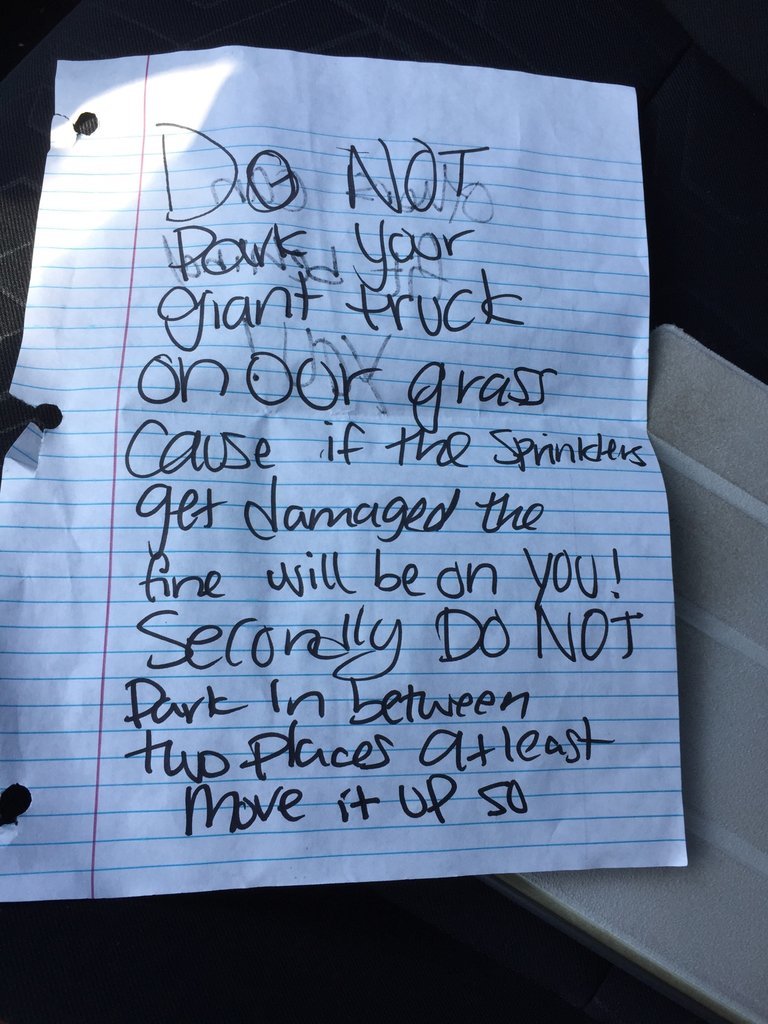 DO NOT
Park your
giant truck
on our grass
Cause if the Sprinklers
get damaged the
fine will be on YOU!
Secondly DO NOT
Park in between
two places atleast
move it up so